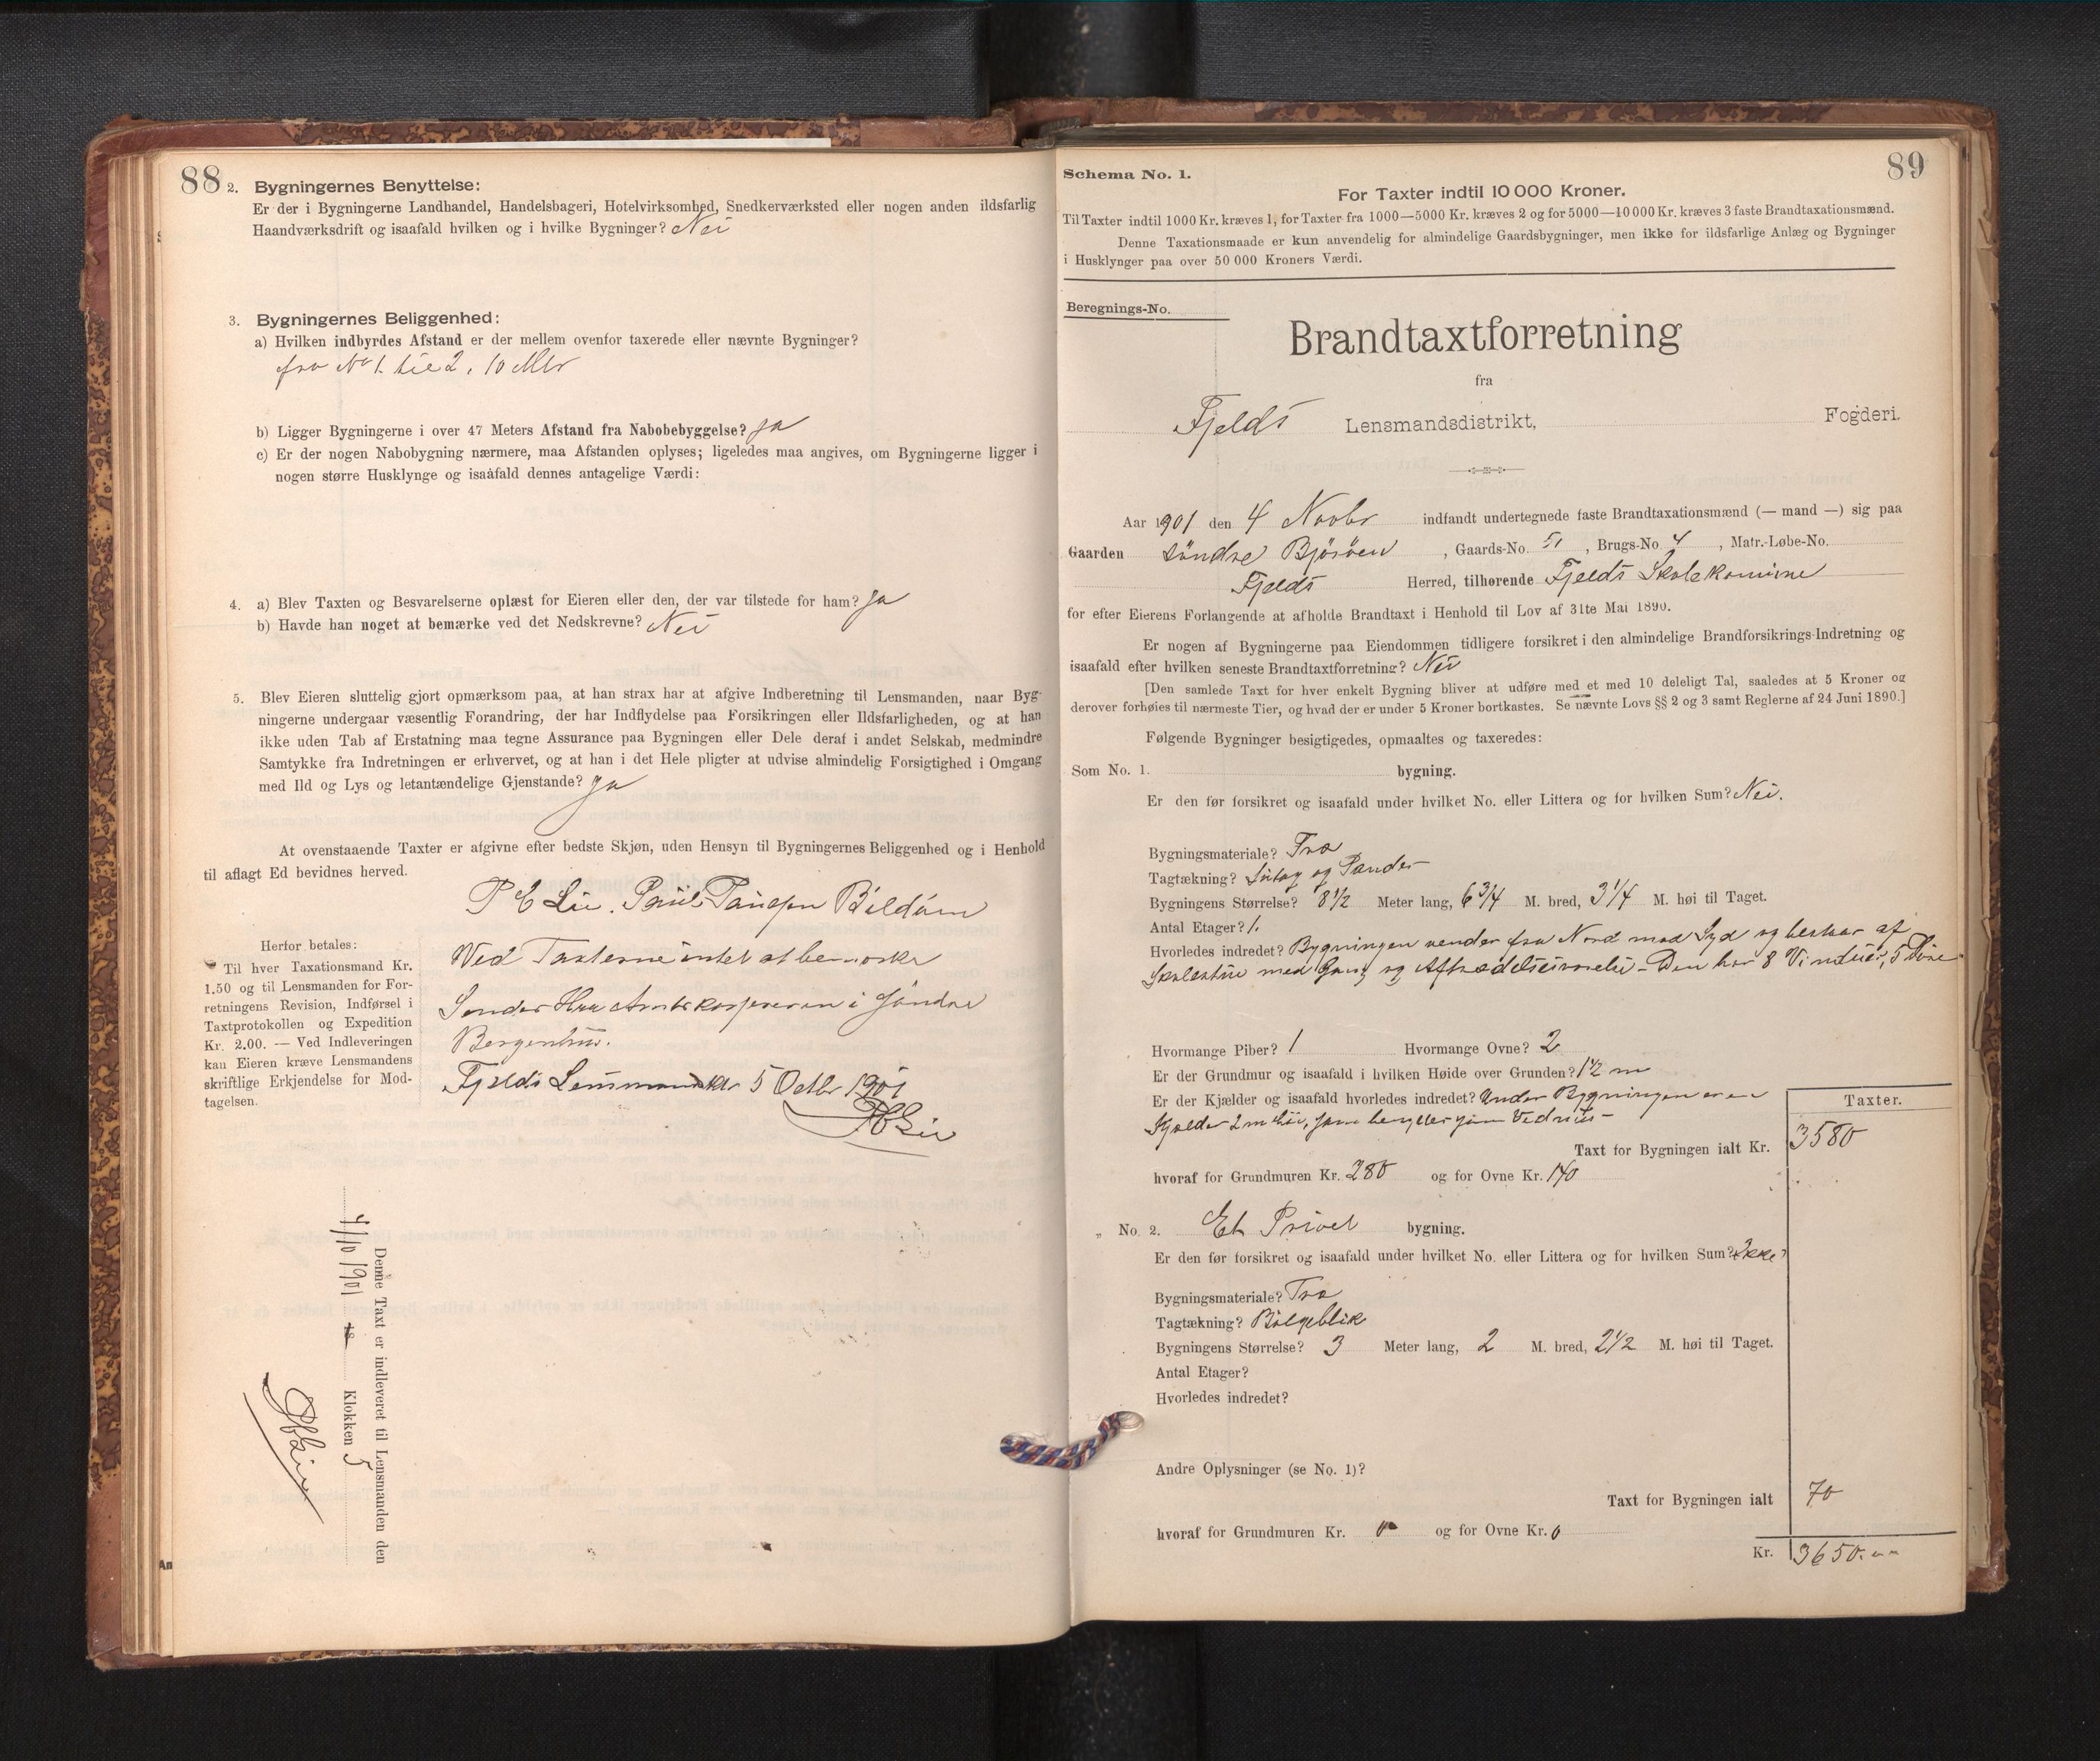 88
2. Bygningernes Benyttelse:
Er der i Bygningerne Landhandel, Handelsbageri, Hotelvirksomhed, Snedkerværksted eller nogen anden ildsfarlig
Haandværksdrift og isaafald hvilken og i hvilke Bygninger? Nei
3. Bygningernes Beliggenhed:
a) Hvilken indbyrdes Afstand er der mellem ovenfor taxerede eller nævnte Bygninger?
fra No 1 til 2, 10 Mtr
b) Ligger Bygningerne i over 47 Meters Afstand fra Nabobebyggelse? Ja
c) Er der nogen Nabobygning nærmere, maa Afstanden oplyses; ligeledes maa angives, om Bygningerne ligger i
nogen større Husklynge og isaafald dennes antagelige Værdi:
4. a) Blev Taxten og Besvarelserne oplæst for Eieren eller den, der var tilstede for ham? Ja
b) Havde han noget at bemærke ved det Nedskrevne? Nei
5. Blev Eieren sluttelig gjort opmærksom paa, at han strax har at afgive Indberetning til Lensmanden, naar Byg-
ningerne undergaar væsentlig Forandring, der har Indflydelse paa Forsikringen eller Ildsfarligheden, og at han
ikke uden Tab af Erstatning maa tegne Assurance paa Bygningen eller Dele deraf i andet Selskab, medmindre
Samtykke fra Indretningen er erhvervet, og at han i det Hele pligter at udvise almindelig Forsigtighed i Omgang
med Ild og Lys og letantændelige Gjenstande? Ja
At ovenstaaende Taxter er afgivne efter bedste Skjøn, uden Hensyn til Bygningernes Beliggenhed og i Henhold
til aflagt Ed bevidnes herved.
P E Lie. Paul Bildøen
Ved Taxterne intet at bemærke
Sendes Hrr Amtskassereren i Søndre
Bergenhus.
Fjelds Lensmandsktr 5 Octbr 1901
Lie
Herfor betales:
Til hver Taxationsmand Kr.
1.50 og til Lensmanden for For-
retningens Revision, Indførsel i
Taxtprotokollen og Expedition
Kr. 2.00. — Ved Indleveringen
kan Eieren kræve Lensmandens
skriftlige Erkjendelse for Mod-
tagelsen.
Denne Taxt er indleveret til Lensmanden den
4/10 1901 18 Klokken 5
Lie
89
Schema No. 1.
For Taxter indtil 10 000 Kroner.
Til Taxter indtil 1000 Kr. kræves 1, for Taxter fra 1000—5000 Kr. kræves 2 og for 5000—10 000 Kr. kræves 3 faste Brandtaxationsmænd.
Denne Taxationsmaade er kun anvendelig for almindelige Gaardsbygninger, men ikke for ildsfarlige Anlæg og Bygninger
i Husklynger paa over 50 000 Kroners Værdi.
Beregnings-No.
Brandtaxtforretning
fra
Fjelds Lensmandsdistrikt, Fogderi.
Aar 1901 den 4 Novbr indfandt undertegnede faste Brandtaxationsmænd (— mand —) sig paa
Gaarden Søndre Bjørøen, Gaards-No. 51, Brugs-No. 4, Matr.-Løbe-No.
Fjelds Herred, tilhørende Fjelds Skolekomune
for efter Eierens Forlangende at afholde Brandtaxt i Henhold til Lov af 31te Mai 1890.
Er nogen af Bygningerne paa Eiendommen tidligere forsikret i den almindelige Brandforsikrings-Indretning og
isaafald efter hvilken seneste Brandtaxtforretning? Nei
[Den samlede Taxt for hver enkelt Bygning bliver at udføre med et med 10 deleligt Tal, saaledes at 5 Kroner og
derover forhøies til nærmeste Tier, og hvad der er under 5 Kroner bortkastes. Se nævnte Lovs §§ 2 og 3 samt Reglerne af 24 Juni 1890.]
Følgende Bygninger besigtigedes, opmaaltes og taxeredes:
Som No. 1. bygning.
Er den før forsikret og isaafald under hvilket No. eller Littera og for hvilken Sum? Nei.
Bygningsmateriale? Træ
Tagtækning? Sutag og Pander
Bygningens Størrelse? 8½ Meter lang, 6¾ M. bred, 3¼ M. høi til Taget.
Antal Etager? 1.
Hvorledes indredet? Bygningen vender fra Nord mod Syd og bestaar af
Skolestue med Gang og Aftrædelsesværelse - Den har 8 Vinduer, 5 Døre
Hvormange Piber? 1 Hvormange Ovne? 2
Er der Grundmur og isaafald i hvilken Høide over Grunden? 1½ m
Er der Kjælder og isaafald hvorledes indredet? Under Bygningen er en
Kjælder 2 m høi, som benyttes som Vedhus
Taxter.
Taxt for Bygningen ialt Kr. 3580
hvoraf for Grundmuren Kr. 280 og for Ovne Kr. 140
„ No. 2. Et Privet bygning.
Er den før forsikret og isaafald under hvilket No. eller Littera og for hvilken Sum? Ikke
Bygningsmateriale? Træ
Tagtækning? Bølgeblik
Bygningens Størrelse? 3 Meter lang, 2 M. bred, 2½ M. høi til Taget.
Antal Etager?
Hvorledes indredet?
Andre Oplysninger (se No. 1)?
Taxt for Bygningen ialt 70
hvoraf for Grundmuren Kr. 0 og for Ovne Kr. 0
Kr. 3650.